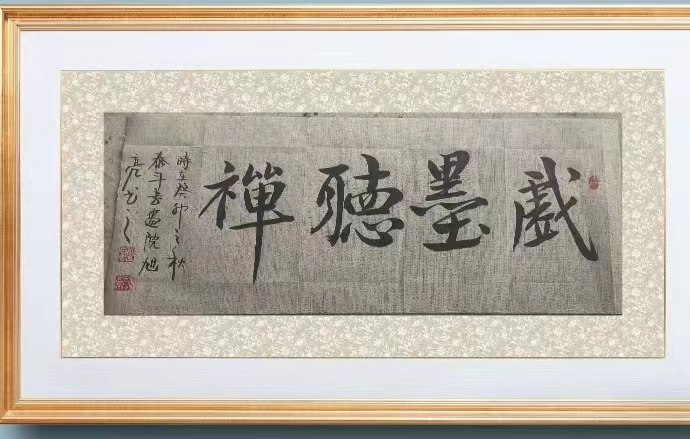 戲墨聽禪
時在癸卯之秋
泰斗書畫院旭
亮书之